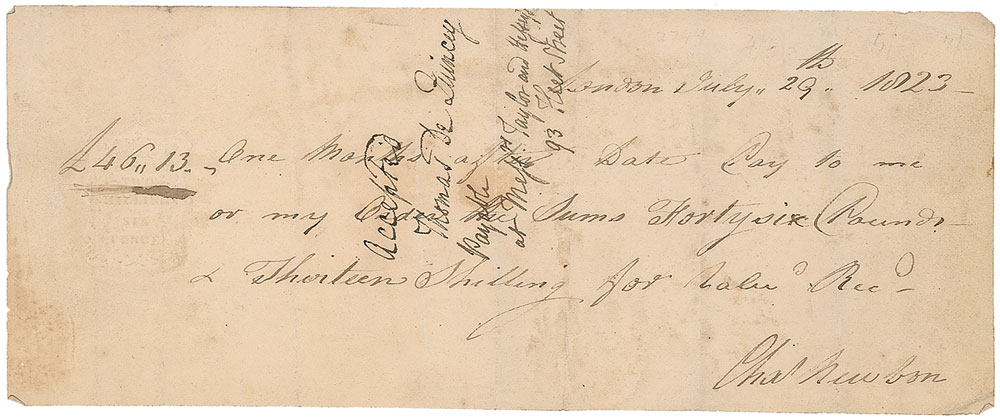 London July 29th 1823
£46,, 13.- One Month after Date Pay to me
or my Order the Sums Fortysix Pounds
& Thirteen Shilling for Value Recd
Chas Newbon
Accepted
Thomas De Quincey
Payable
at Messrs Taylor and Hessey
93 Fleet Street